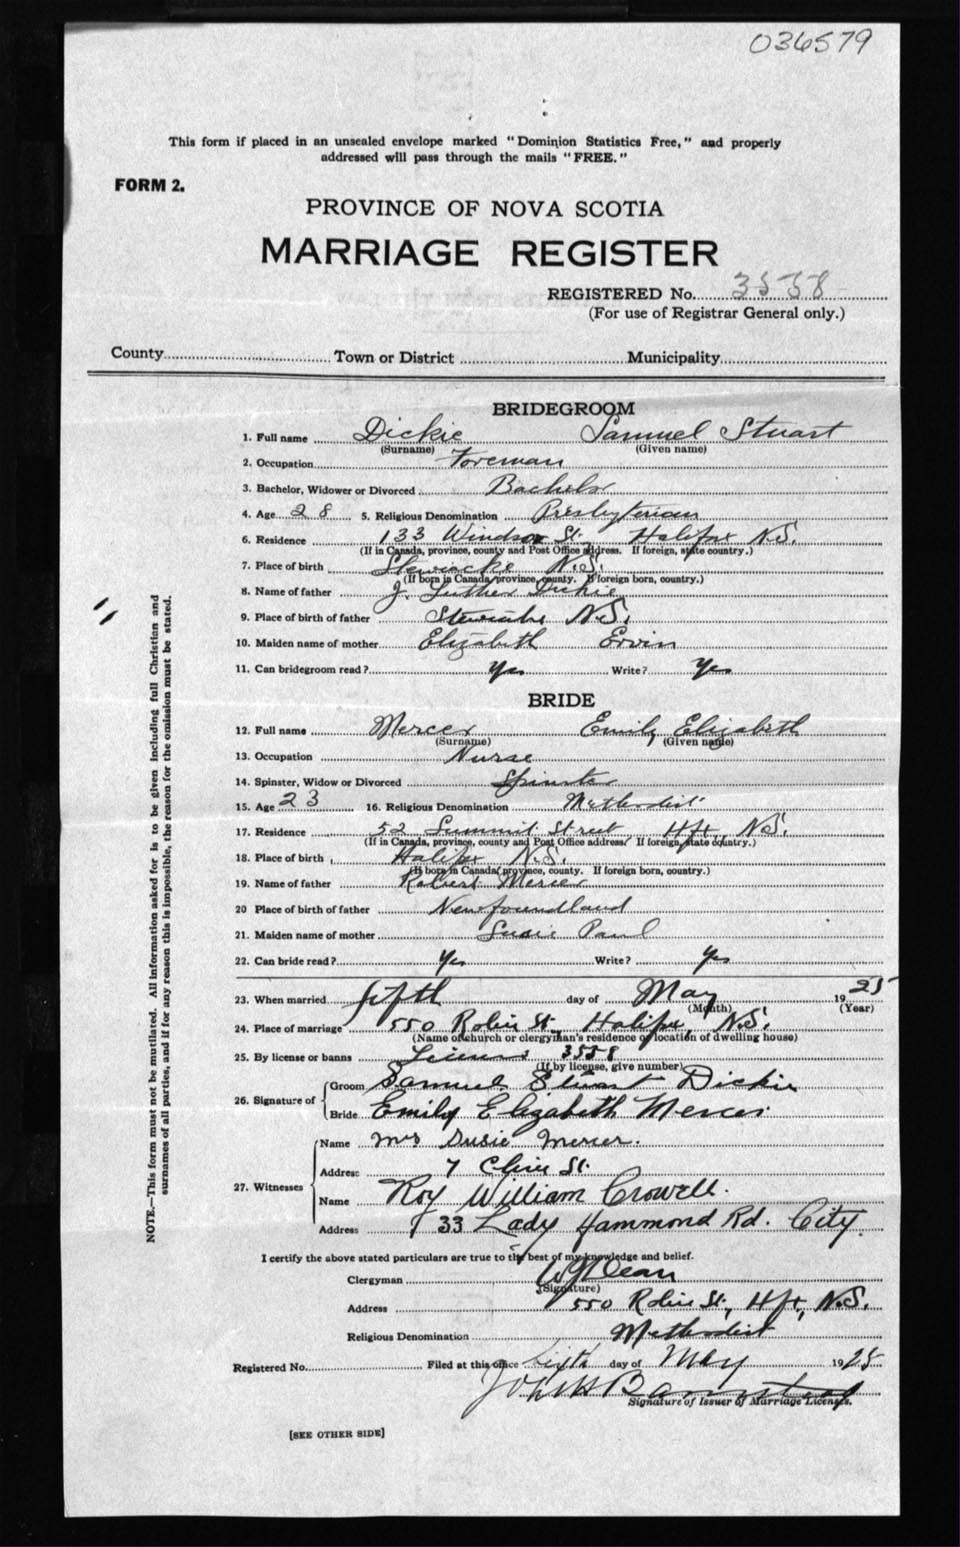 036579
This form if placed in an unsealed envelope marked "Dominion Statistics Free," and properly
addressed will pass through the mails "FREE."
FORM 2.
PROVINCE OF NOVA SCOTIA
MARRIAGE REGISTER
REGISTERED No. 3558
(For use of Registrar General only.)
County Town or District Municipality
BRIDEGROOM
1. Full name Dickie Samuel Stuart
(Surname) (Given name)
2. Occupation Foreman
3. Bachelor, Widower or Divorced Bachelor
4. Age 28 5. Religious Denomination Presbyterian
6. Residence 133 Windsor St. Halifax N.S.
(If in Canada, province, county and Post Office address. If foreign, state country.)
7. Place of birth Stewiacke N.S.
(If born in Canada, province, county. If foreign born, country.)
8. Name of father J. Luther Dickie
9. Place of birth of father Stewiacke N.S.
10. Maiden name of mother Elizabeth Ervin
11. Can bridegroom read? Yes Write? Yes
BRIDE
12. Full name Mercer Emily Elizabeth
(Surname) (Given name)
13. Occupation Nurse
14. Spinster, Widow or Divorced Spinster
15. Age 23 16. Religious Denomination Methodist
17. Residence 52 Summit Street Hfx, N.S.
(If in Canada, province, county and Post Office address. If foreign, state country.)
18. Place of birth Halifax N.S.
(If born in Canada, province, county. If foreign born, country.)
19. Name of father Robert Mercer
20 Place of birth of father Newfoundland
21. Maiden name of mother Susie Paul
22. Can bride read? Yes Write? Yes
23. When married fifth day of May 1925
(Month) (Year)
24. Place of marriage 550 Robie St., Halifax, N.S.
(Name of church or clergyman's residence or location of dwelling house)
25. By license or banns License 3558
(If by license, give number)
26. Signature of Groom Samuel Stuart Dickie
Bride Emily Elizabeth Mercer
27. Witnesses Name Mrs Susie Mercer.
Address 7 St.
Name Roy William Crowell.
Address 33 Lady Hammond Rd. City.
I certify the above stated particulars are true to the best of my knowledge and belief.
Clergyman W J Dean
(Signature)
Address 550 Robie St., Hfx, N.S.
Religious Denomination Methodist
Registered No. Filed at this office sixth day of May 1925
John H Barnstead
Signature of Issuer of Marriage Licenses.
[SEE OTHER SIDE]
NOTE.—This form must not be mutilated. All information asked for is to be given including full Christian and
surnames of all parties, and if for any reason this is impossible, the reason for the omission must be stated.